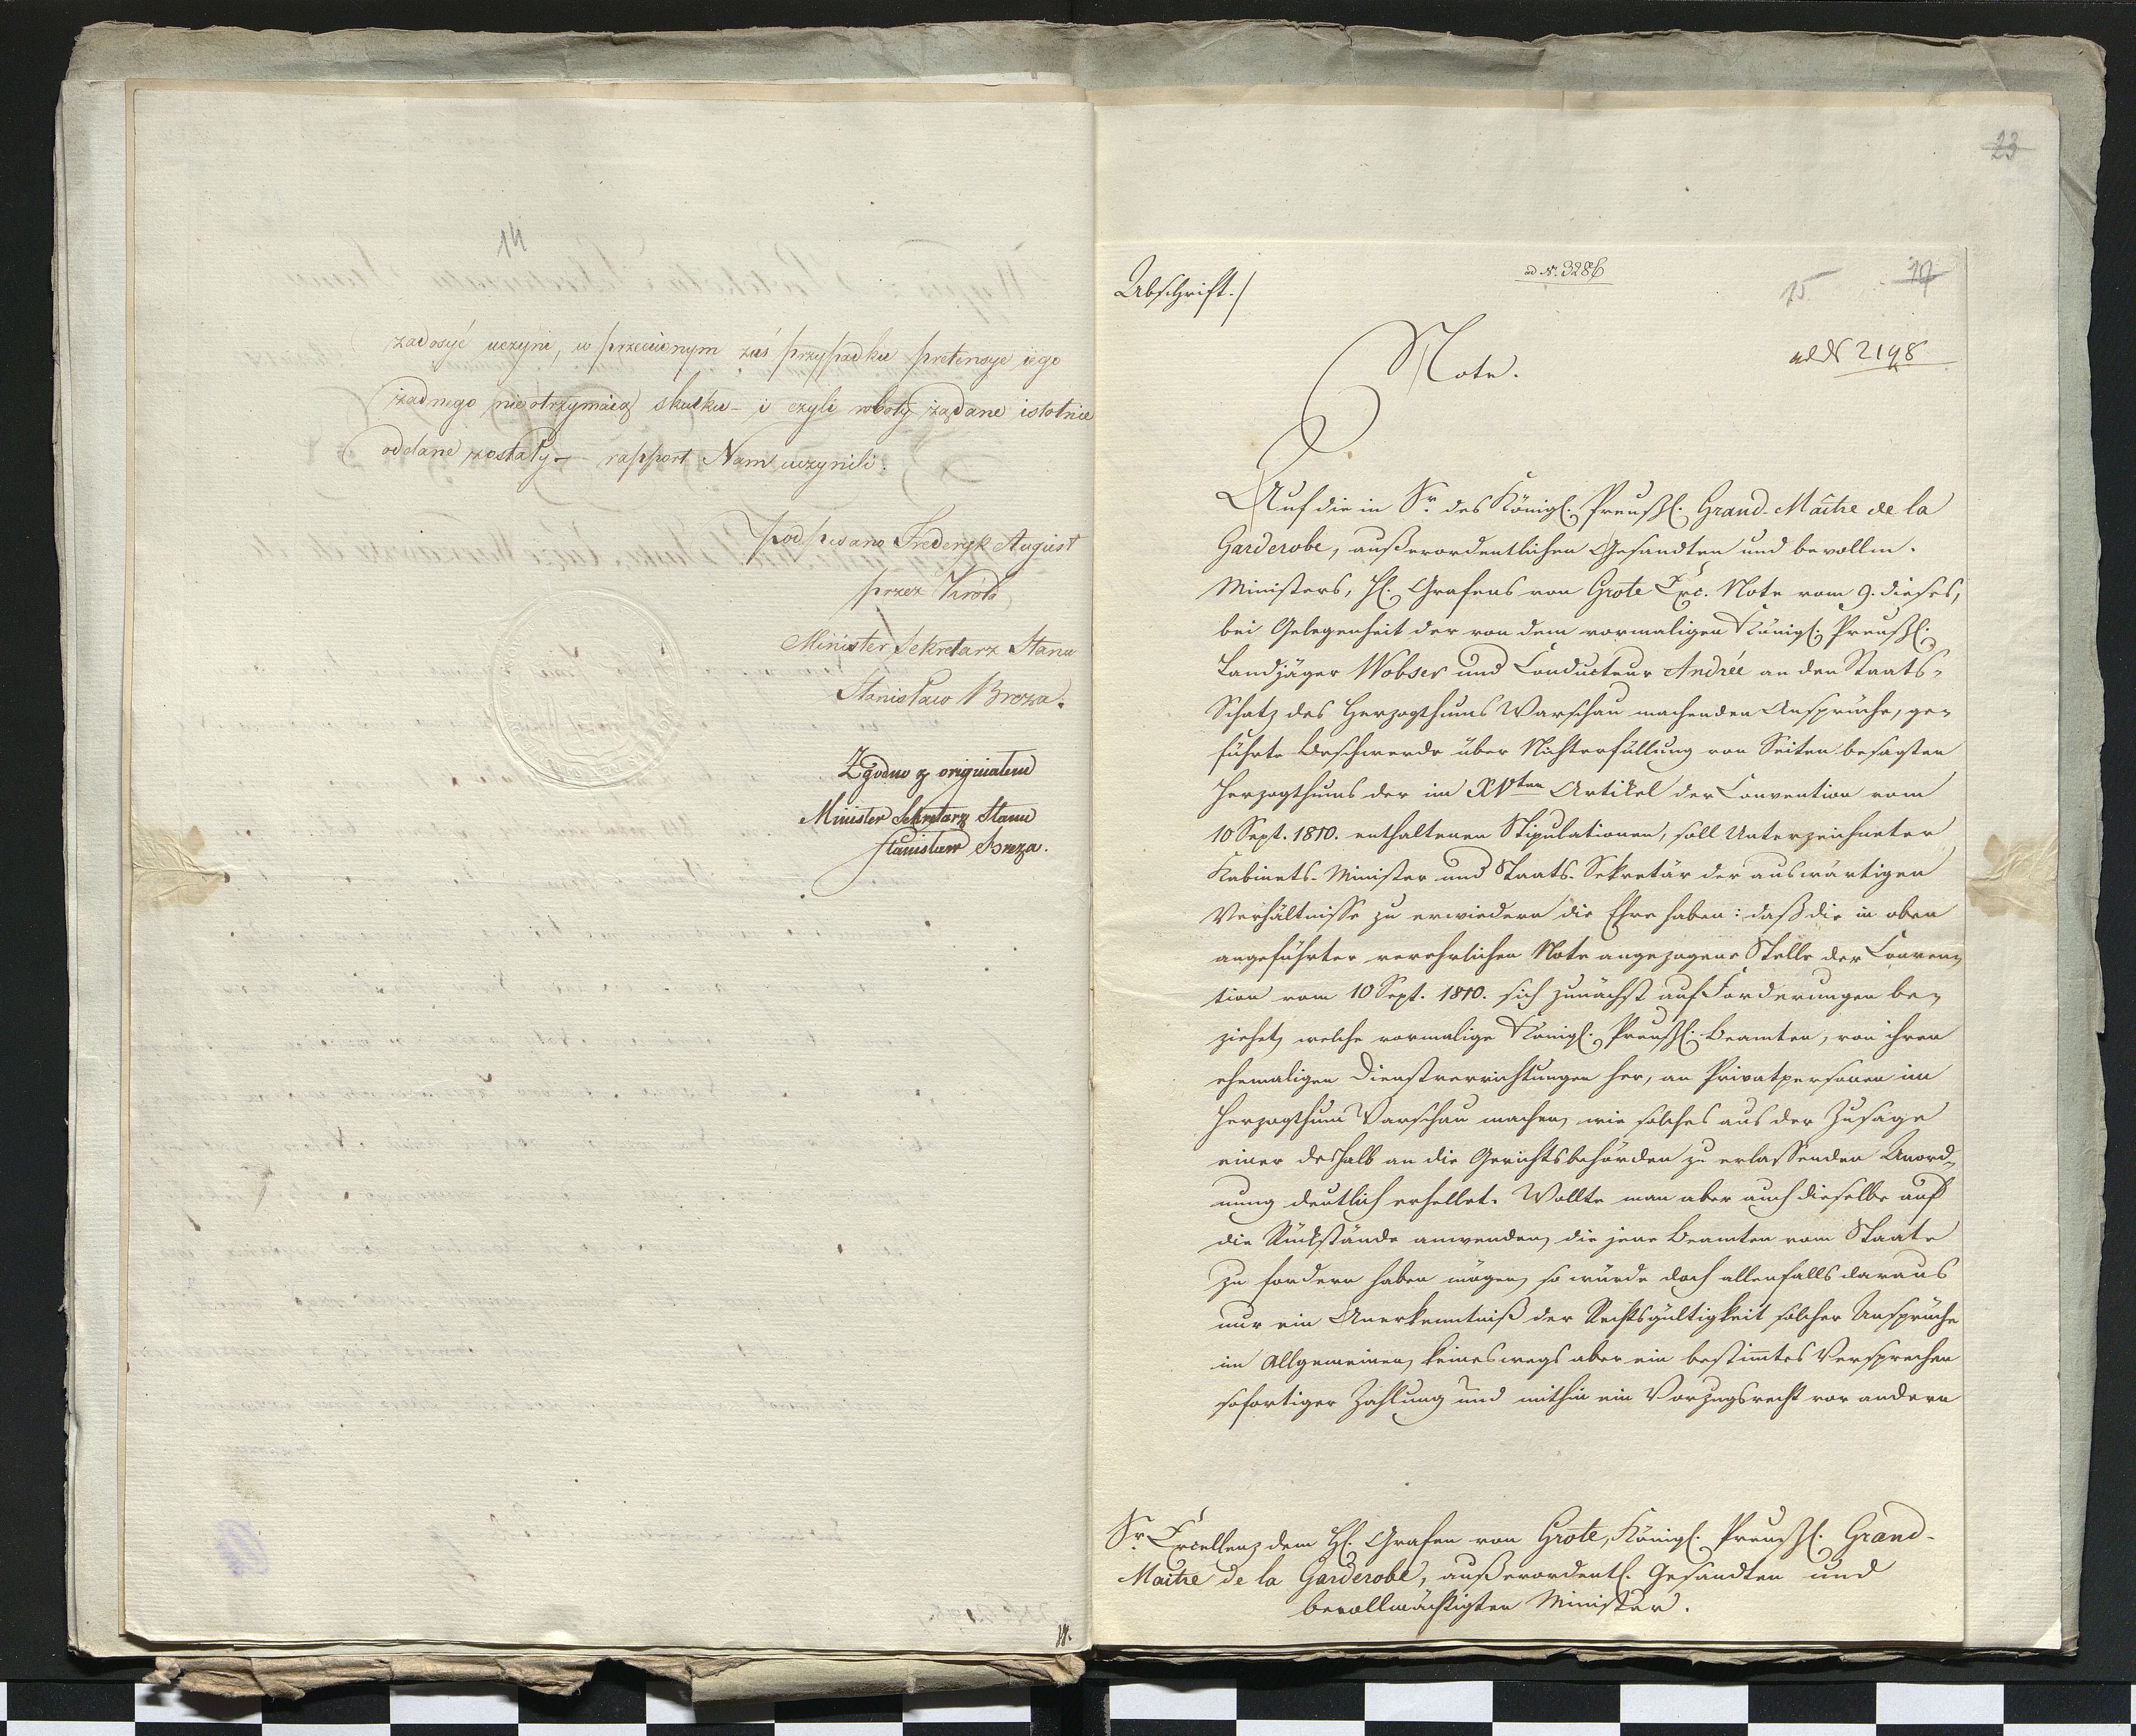 14
zadosyć uczyni, w przeciwnym zaś przypadku pretensye iego
żadnego nieotrzymaią skutku – i czyli roboty żądane istotnie
oddane zostały – rapport Nam uczynili.
podpisano Frederyk August
przez Króla
Minister Sekretarz Stanu
Stanisław Breza.
Zgodno z originałem
Minister Sekretarz Stanu
Stanisław Breza.
23
Abschrift./
ad N. 3286
15
17
ad N 2198
Note.
Auf die in Sr. des Königl. Preußl. Grand-Maître de la
Garderobe, außerordentlichen Gesandten und bevollm.
Ministers, H. Grafens von Grote Exc. Note vom 9. dieses,
bei Gelegenheit der von dem vormaligen Königl. Preußl.
Landjäger Wobser und Conducteur Andrée an den Staats-
Schatz des Herzogthums Warschau machenden Ansprüche, ge-
führte Beschwerde über Nichterfüllung von Seiten besagten
Herzogthums der im XVten Artikel der Convention vom
10 Sept. 1810. enthaltenen Stipulationen, soll Unterzeichneter
Kabinets-Minister und Staats-Sekretär der auswärtigen
Verhältnisse zu erwiedern die Ehre haben: daß die in oben
angeführter verehrlichen Note angezogene Stelle der Conven-
tion vom 10 Sept. 1810. sich zunächst auf Forderungen be-
ziehet, welche vormalige Königl. Preußl. Beamten, von ihren
ehemaligen Dienstverrichtungen her, an Privatpersonen im
Herzogthum Warschau machen, wie solches aus der Zusage
einer deshalb an die Gerichtsbehörden zu erlassenden Anord-
nung deutlich erhellet. Wollte man aber auch dieselbe auf
die Rückstände anwenden, die jene Beamten vom Staate
zu fordern haben mögen, so würde doch allenfalls daraus
nur ein Anerkenntniß der Rechtsgültigkeit solcher Ansprüche
im Allgemeinen, keineswegs aber ein bestimtes Versprechen
sofortiger Zahlung und mithin ein Vorzugsrecht vor andern
Sr. Excellenz dem H. Grafen von Grote, Königl. Preußl. Grand-
Maitre de la Garderobe, außerordentl. Gesandten und
bevollmächtigten Minister.